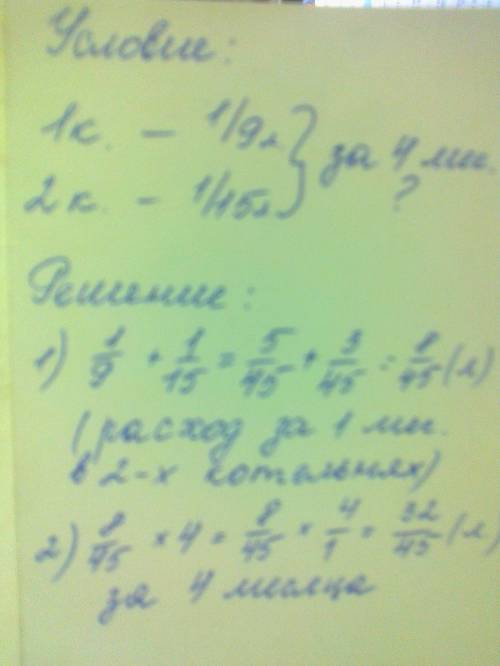 Условие:
1к. — 1/9л } за 4 ми.
2к. - 1/15л } ?
Решение:
1) 1/9 + 1/15 = 5/45 + 3/45 = 8/45 (л)
(расход за 1 ми.
в 2-х котельнях)
2) 8/45 × 4 = 8/45 × 4/1 = 32/45 (л)
за 4 месяца